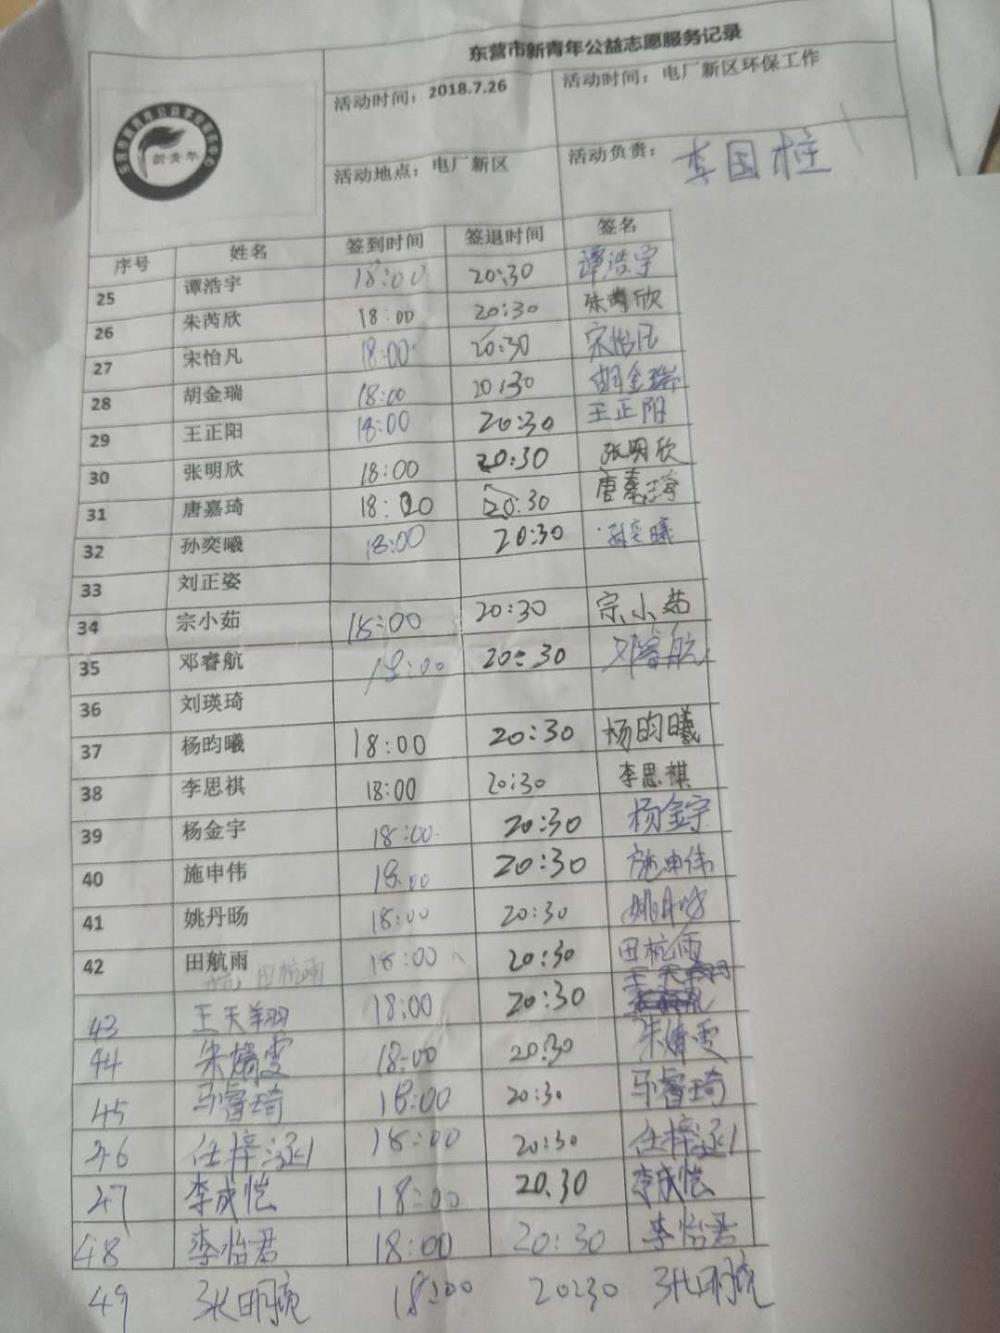 东营市新青年公益志愿服务记录
活动时间：2018.7.26 活动时间：电厂新区环保工作
新青年
活动地点：电厂新区 活动负责： 李国柱
序号 姓名 签到时间 签退时间 签名
25 谭浩宇 18:00 20:30 谭浩宇
26 朱芮欣 18:00 20:30 朱芮欣
27 宋怡凡 18:00 20:30 宋怡凡
28 胡金瑞 18:00 20:30 胡金瑞
29 王正阳 18:00 20:30 王正阳
30 张明欣 18:00 20:30 张明欣
31 唐嘉琦 18:00 20:30 唐嘉琦
32 孙奕曦 18:00 20:30 孙奕曦
33 刘正姿
34 宗小茹 18:00 20:30 宗小茹
35 邓睿航 18:00 20:30 邓睿航
36 刘瑛琦
37 杨昀曦 18:00 20:30 杨昀曦
38 李思祺 18:00 20:30 李思祺
39 杨金宇 18:00 20:30 杨金宇
40 施申伟 18:00 20:30 施申伟
41 姚丹旸 18:00 20:30 姚丹旸
42 田航雨 18:00 20:30 田杭雨
杭 田杭雨
43 王天翔 18:00 20:30 王天翔
44 18:00 20:30
45 马睿琦 18:00 20:30 马睿琦
46 任梓涵 18:00 20:30 任梓涵
47 李成恺 18:00 20.30 李成恺
48 李怡君 18:00 20:30 李怡君
49 18:00 20:30